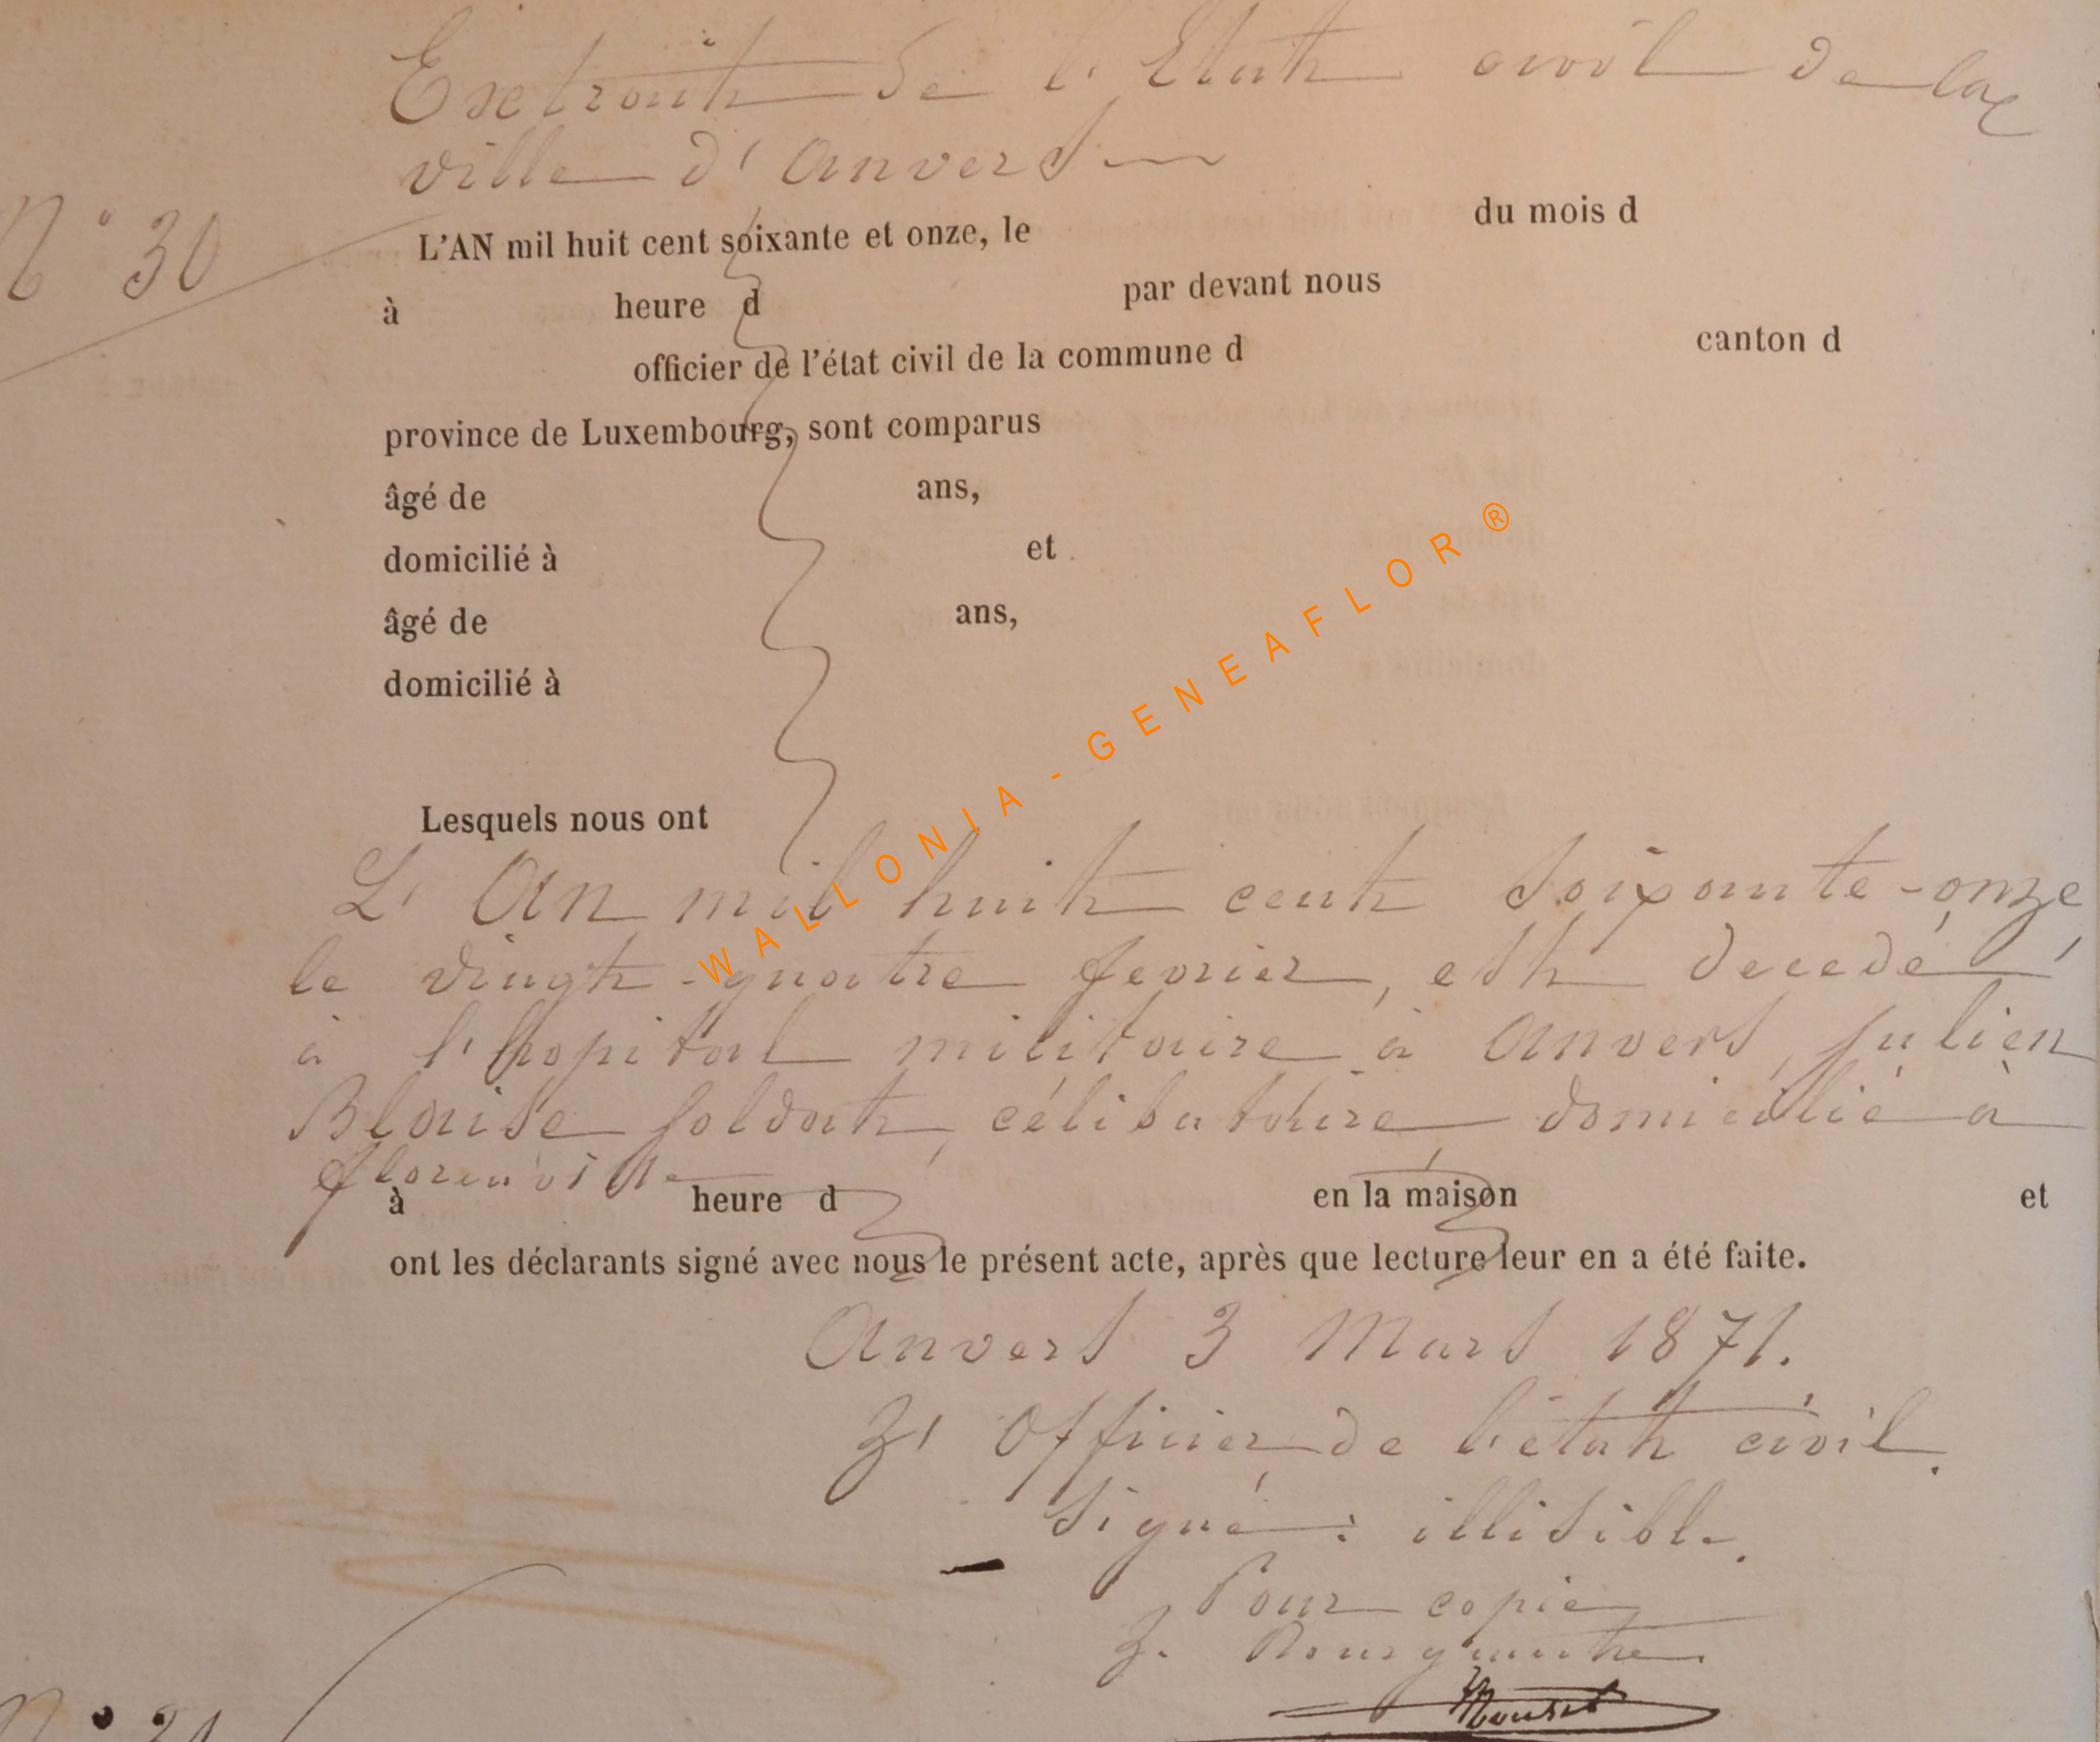 Extrait de l'Etat civil de la
ville d'Anvers
N° 30
L'AN mil huit cent soixante et onze, le du mois d
à heure d par devant nous
officier de l'état civil de la commune d canton d
province de Luxembourg, sont comparus
âgé de ans,
domicilié à et
âgé de ans,
domicilié à
WALLONIA - GENEAFLOR ®
Lesquels nous ont
L'An mil huit cent soixante-onze
le vingt-quatre fevrier, est decedé
à l'hopital militaire à Anvers, Julien
Blaise soldat, célibataire domicilié à
florenville
à heure d en la maison et
ont les déclarants signé avec nous le présent acte, après que lecture leur en a été faite.
Anvers 3 Mars 1871.
L'Officier de l'état civil.
Signé: illisible.
Pour copie
L. Bourgmestre
N° 31